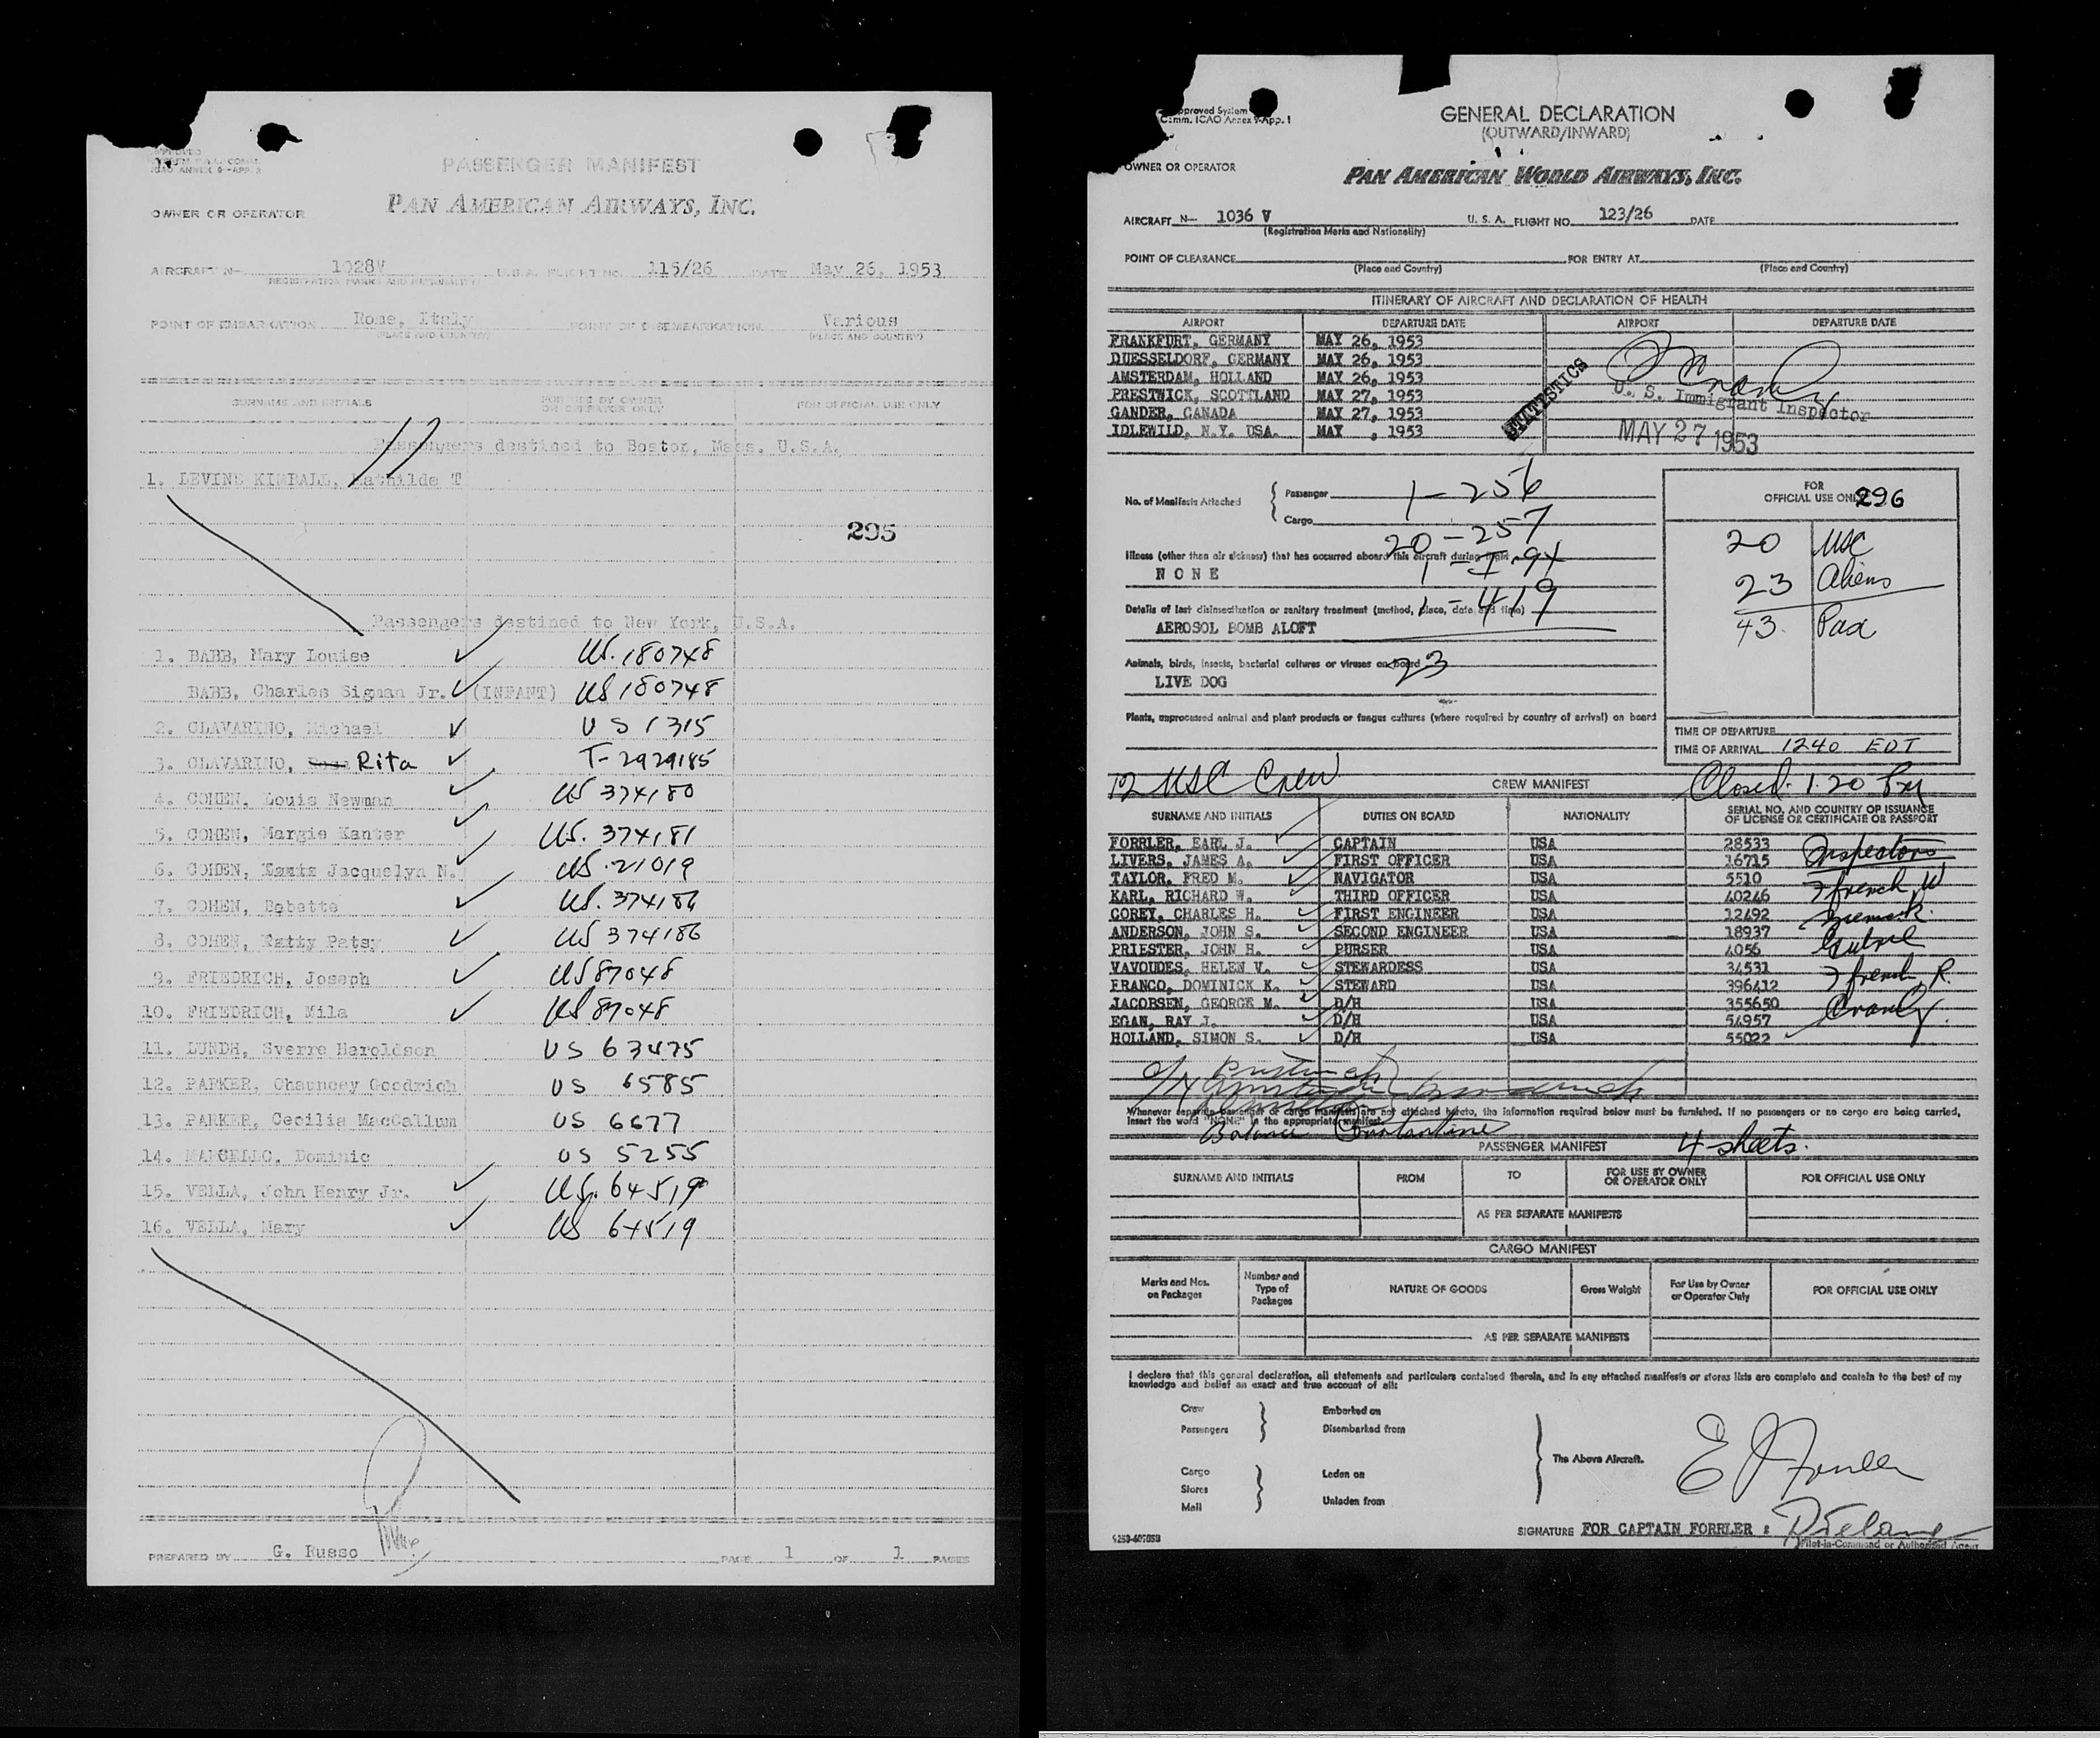 PASSENGER MANIFEST
OWNER OR OPERATOR PAN AMERICAN AIRWAYS, INC.
AIRCRAFT N- 1028V U.S.A. FLIGHT NO. 115/26 DATE May 26, 1953
(REGISTRATION MARKS AND NATIONALITY)
POINT OF EMBARKATION Rome, Italy POINT OF DISEMBARKATION Various
(PLACE AND COUNTRY) (PLACE AND COUNTRY)
SURNAME AND INITIALS FOR USE BY OWNER OR OPERATOR ONLY FOR OFFICIAL USE ONLY
Passengers destined to Boston, Mass. U.S.A.
1. LEVINE KIMBALL, Mathilde T
295
Passengers destined to New York, U.S.A.
1. BABB, Mary Louise US. 180748
BABB, Charles Sigman Jr. (INFANT) US 180748
2. CLAVARINO, Michael US 1315
3. CLAVARINO, Rita T-2929185
4. COHEN, Louis Newman US 374180
5. COHEN, Margie Kanter US. 374181
6. COHEN, Jacquelyn N. US. 21019
7. COHEN, Bobette US. 374186
8. COHEN, Patsy US 374186
9. FRIEDRICH, Joseph US 87048
10. FRIEDRICH, Mila US 87048
11. LUNDH, Sverre Haroldson US 63475
12. PARKER, Chauncey Goodrich US 6585
13. PARKER, Cecilia MacCallum US 6677
14. MARCELLO, Dominic US 5255
15. VELLA, John Henry Jr. US. 64519
16. VELLA, Mary US 64519
PREPARED BY G. Russo PAGE 1 OF 1 PAGES
Approved System
Comm. ICAO Annex 9-App. 1
GENERAL DECLARATION
(OUTWARD/INWARD)
OWNER OR OPERATOR PAN AMERICAN WORLD AIRWAYS, INC.
AIRCRAFT N- 1036 V U. S. A. FLIGHT NO. 123/26 DATE
(Registration Marks and Nationality)
POINT OF CLEARANCE FOR ENTRY AT
(Place and Country) (Place and Country)
ITINERARY OF AIRCRAFT AND DECLARATION OF HEALTH
AIRPORT DEPARTURE DATE AIRPORT DEPARTURE DATE
FRANKFURT, GERMANY MAY 26, 1953
DUESSELDORF, GERMANY MAY 26, 1953
AMSTERDAM, HOLLAND MAY 26, 1953
PRESTWICK, SCOTTLAND MAY 27, 1953
GANDER, CANADA MAY 27, 1953
IDLEWILD, N.Y. USA. MAY , 1953
STATISTICS
U. S. Immigrant Inspector
MAY 27 1953
No. of Manifests Attached Passenger 1-256
Cargo 20-257
FOR OFFICIAL USE ONLY 296
20 USC
23 Aliens
43 Pax
Illness (other than air sickness) that has occurred aboard this aircraft during flight 1-I-94
NONE
Details of last disinsectization or sanitary treatment (method, place, date and time) 1-419
AEROSOL BOMB ALOFT
Animals, birds, insects, bacterial cultures or viruses on board 23
LIVE DOG
Plants, unprocessed animal and plant products or fungus cultures (where required by country of arrival) on board
TIME OF DEPARTURE
TIME OF ARRIVAL 1240 EDT
12 USC Crew CREW MANIFEST Closed. 1.20 PM
SURNAME AND INITIALS DUTIES ON BOARD NATIONALITY SERIAL NO. AND COUNTRY OF ISSUANCE OF LICENSE OR CERTIFICATE OR PASSPORT
FORRLER, EARL J. CAPTAIN USA 28533 Inspectors
LIVERS, JAMES A. FIRST OFFICER USA 16715
TAYLOR, FRED M. NAVIGATOR USA 5510 Ffrench, W
KARL, RICHARD W. THIRD OFFICER USA 40246
COREY, CHARLES H. FIRST ENGINEER USA 12492
ANDERSON, JOHN S. SECOND ENGINEER USA 18937
PRIESTER, JOHN H. PURSER USA 4056
VAVOUDES, HELEN V. STEWARDESS USA 34531 Ffrench, R.
FRANCO, DOMINICK K. STEWARD USA 396412
JACOBSEN, GEORGE M. D/H USA 355650
EGAN, RAY J. D/H USA 54957
HOLLAND, SIMON S. D/H USA 55022
Whenever separate passenger or cargo manifests are not attached hereto, the information required below must be furnished. If no passengers or no cargo are being carried,
insert the word "NONE" in the appropriate manifest.
Balance
PASSENGER MANIFEST 4 sheets.
SURNAME AND INITIALS FROM TO FOR USE BY OWNER OR OPERATOR ONLY FOR OFFICIAL USE ONLY
AS PER SEPARATE MANIFESTS
CARGO MANIFEST
Marks and Nos. on Packages Number and Type of Packages NATURE OF GOODS Gross Weight For Use by Owner or Operator Only FOR OFFICIAL USE ONLY
AS PER SEPARATE MANIFESTS
I declare that this general declaration, all statements and particulars contained therein, and in any attached manifests or stores lists are complete and contain to the best of my
knowledge and belief an exact and true account of all:
Crew Embarked on
Passengers Disembarked from
The Above Aircraft.
Cargo Laden on
Stores
Mail Unladen from
SIGNATURE FOR CAPTAIN FORRLER :
Pilot-in-Command or Authorized Agent